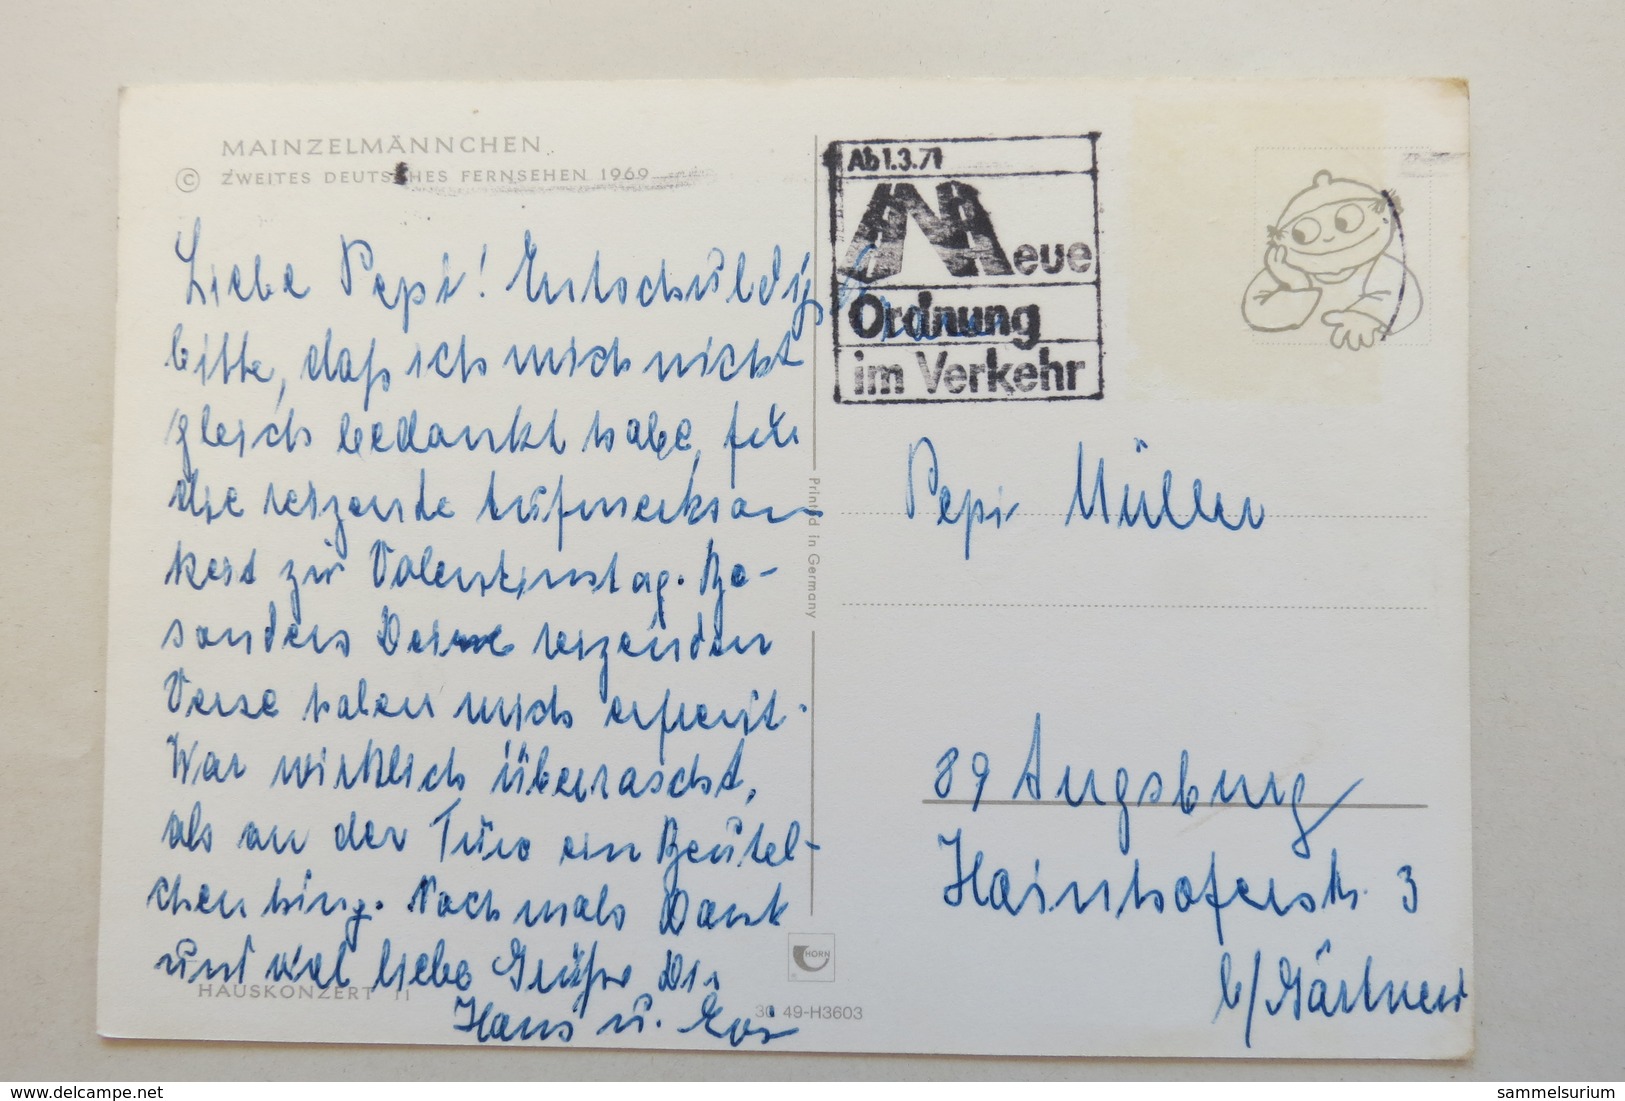 MAINZELMÄNNCHEN
© ZWEITES DEUTSCHES FERNSEHEN 1969
Liebe Pepi! Entschuldige
bitte, daß ich mich nicht
gleich bedankt habe, für
die reizende Aufmerksam-
keit zum Valentinstag. Be-
sonders Deine reizenden
Verse haben mich erfreut.
War wirklich überrascht,
als an der Türe ein Beutel-
chen hing. Nochmals Dank
und viel liebe Grüße Dir
Hans u. Eva
HAUSKONZERT 11
30 49-H3603
Printed in Germany
HORN
Ab 1.3.71
Neue
Ordnung
im Verkehr
Pepi Müller
89 Augsburg
Hainhoferstr. 3
b/Gärtner
www.delcampe.net
sammelsurium